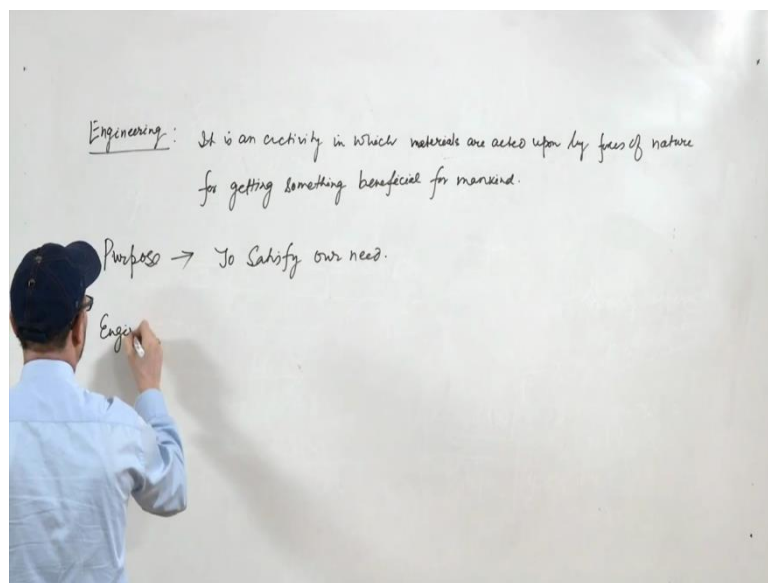 Engineering : It is an activity in which materials are acted upon by forces of nature
for getting something beneficial for mankind.
Purpose → To Satisfy our need.
Engi